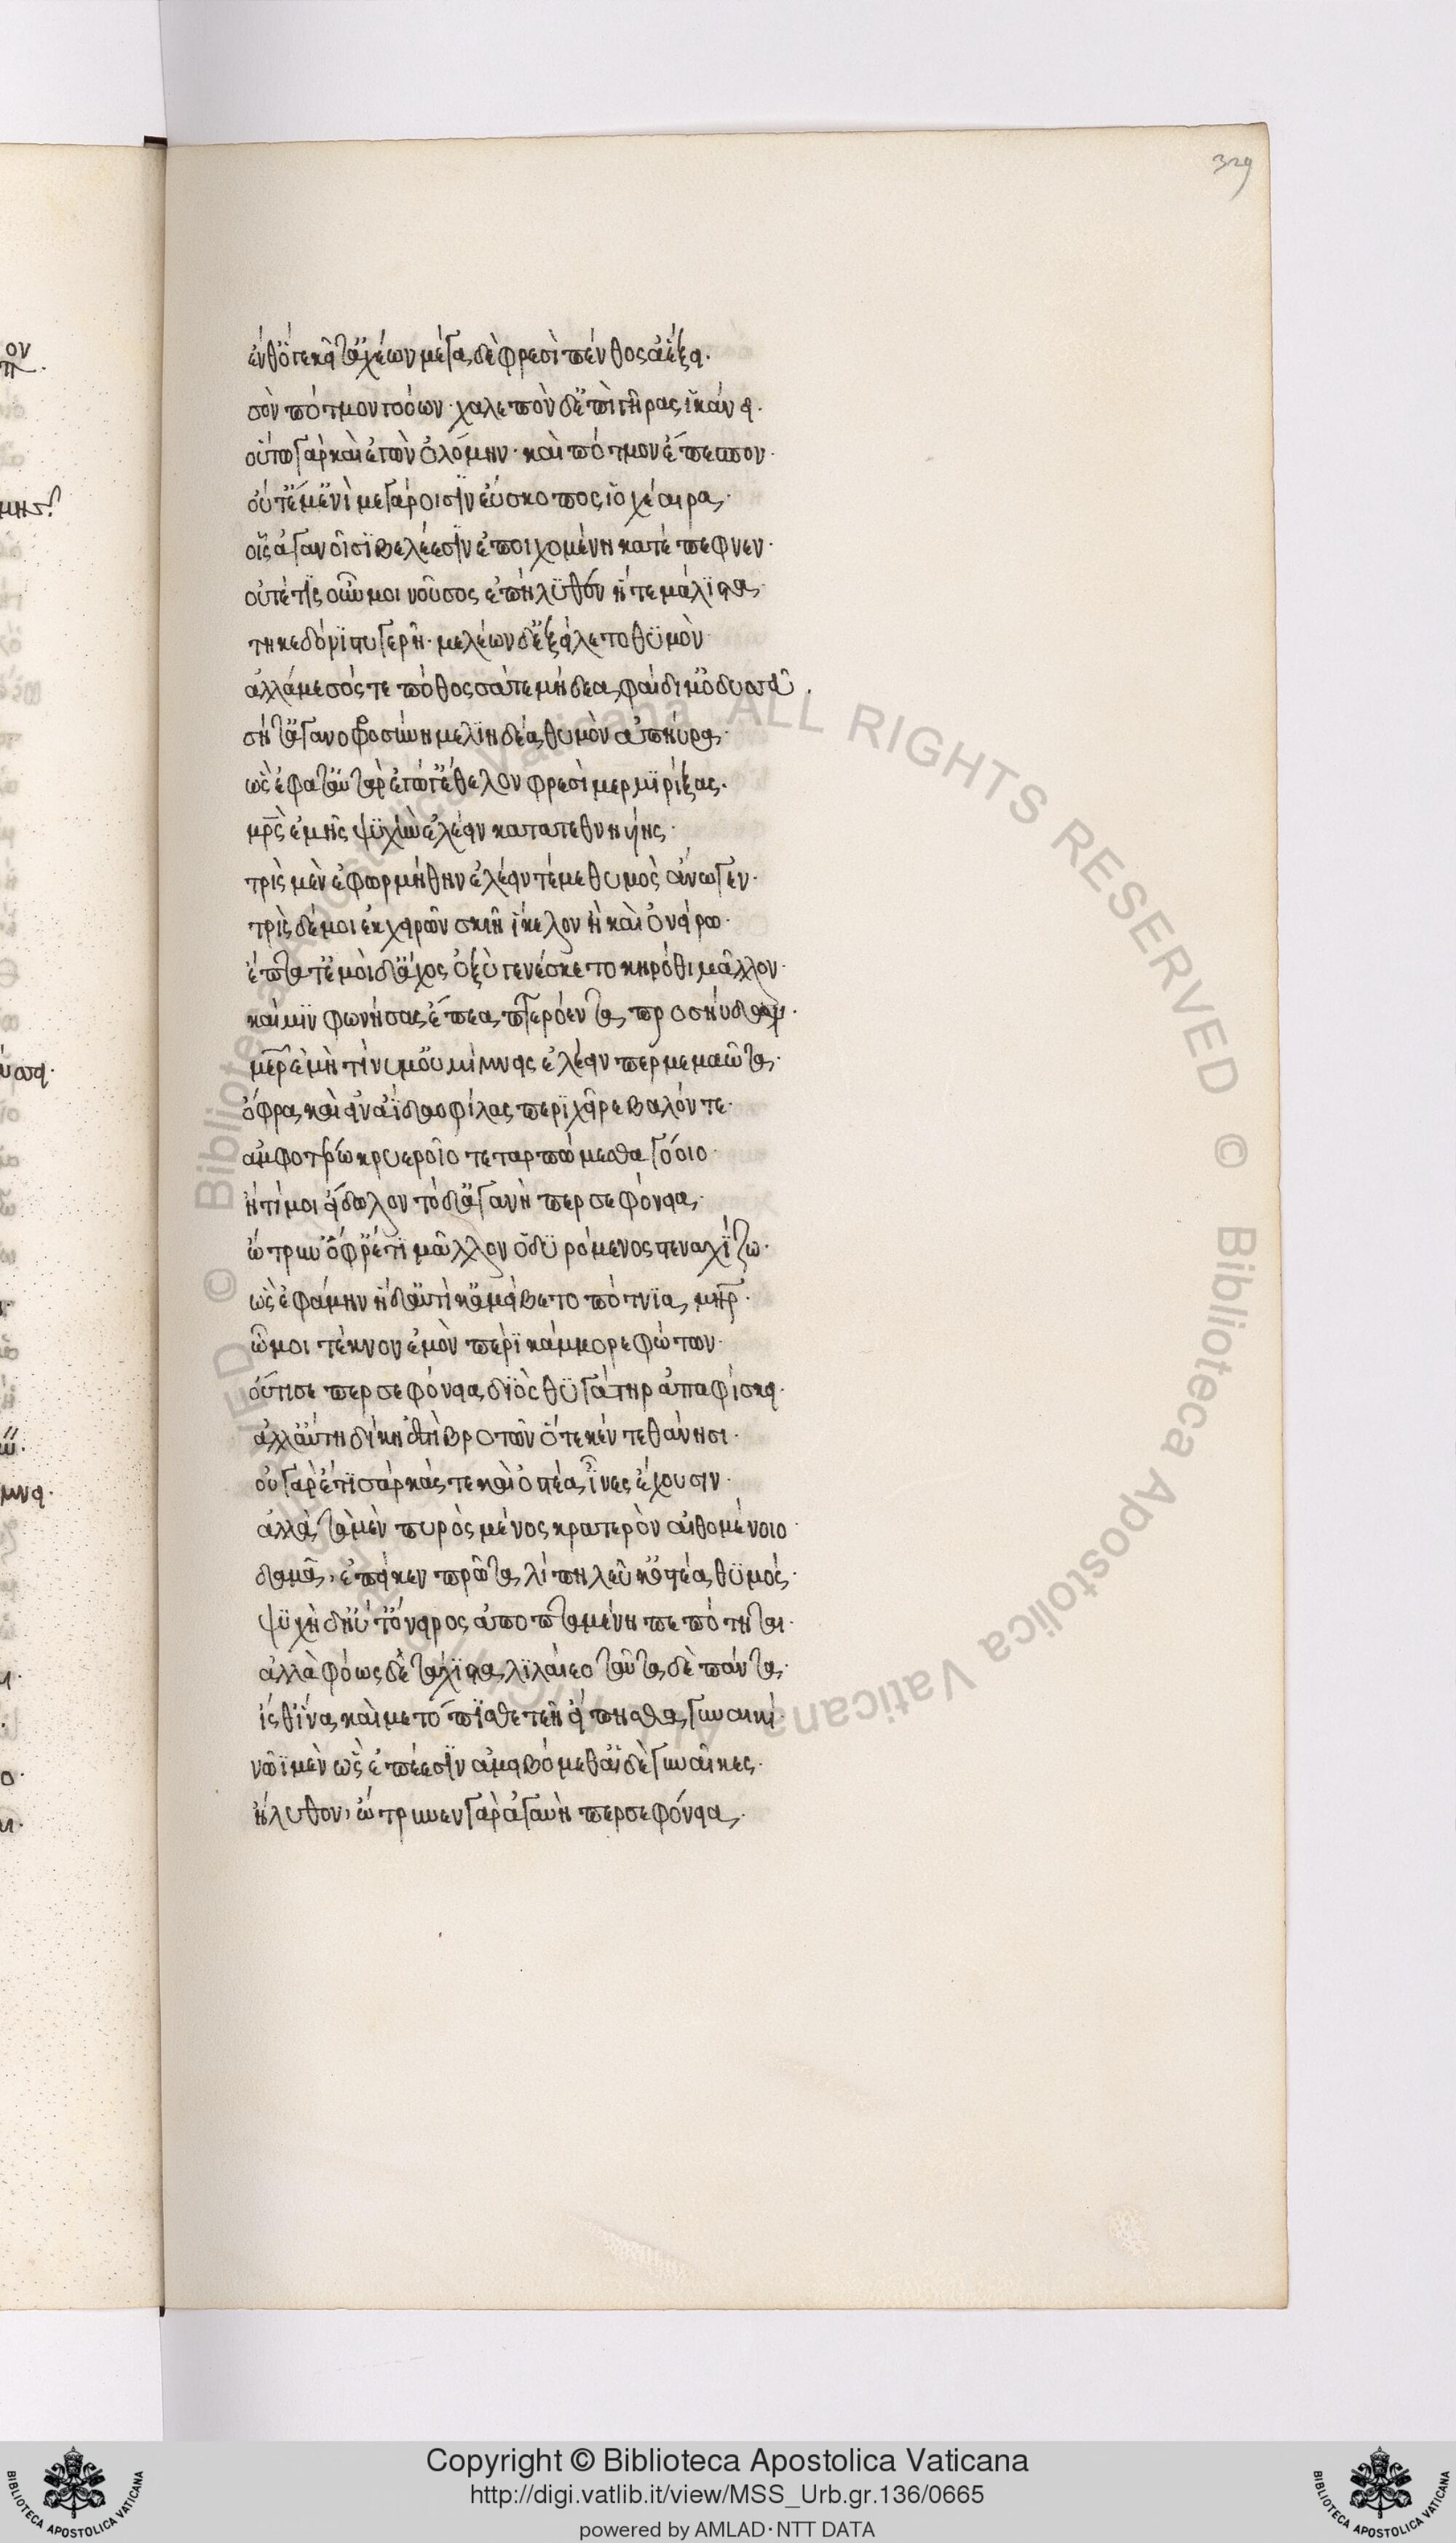 329
ἔνθ' ὅτε κεῖτ' ἀχέων μέγα δὲ φρεσὶ πένθος ἀέξει.
σὸν πότμον γοόων· χαλεπὸν δ' ἐπὶ γῆρας ἱκάνει.
οὕτω γὰρ καὶ ἐγὼν ὀλόμην· καὶ πότμον ἐπέσπον·
οὔτ' ἐμέ γ' ἐνὶ μεγάροισιν ἐύσκοπος ἰοχέαιρα·
οἷς ἀγανοῖσι βελέεσιν ἐποιχομένη κατέπεφνεν·
οὔτέ τις οὖν μοι νοῦσος ἐπήλυθεν ἥτε μάλιστα
τηκεδόνι στυγερῆ· μελέων δ' ἐξείλετο θυμὸν
ἀλλά με σός τε πόθος σά τε μήδεα, φαίδιμ' ὀδυσσεῦ.
σή τ' ἀγανοφροσύνη μελιηδέα θυμὸν ἀπηύρα·
ὣς ἔφατ' αὐτὰρ ἐγώ γ' ἔθελον φρεσὶ μερμηρίξας·
μρς ἐμῆς ψυχὴν ἑλέειν κατατεθνηυίης·
τρὶς μὲν ἐφωρμήθην ἑλέειν τέ με θυμὸς ἀνώγεν·
τρὶς δέ μοι ἐκ χειρῶν σκιῆ ἴκελον ἢ καὶ ὀνείρω·
ἔπτατ' ἐμοὶ δ' ἄχος ὀξὺ γενέσκετο κηρόθι μᾶλλον·
καί μιν φωνήσας ἔπεα πτερόεντα προσηύδων·
μερ ἐμὴ τί νύ μ' οὐ μίμνεις ἑλέειν περ μεμαῶτα·
ὄφρα καὶ εἰν ἀΐδαο φίλας περὶ χεῖρε βαλόντε·
ἀμφοτέρω κρυεροῖο τεταρπώμεσθα γόοιο·
ἦ τί μοι εἴδωλον τόδ' ἀγαυὴ περσεφόνεια
ὤτρυν' ὄφρ' ἔτι μᾶλλον ὀδυρόμενος στεναχίζω·
ὣς ἐφάμην ἡ δ' αὐτίκ' ἀμείβετο πότνια μηρ·
ὤ μοι τέκνον ἐμὸν περὶ κάμμορε φώτων·
οὔτι σε περσεφόνεια διὸς θυγάτηρ ἀπαφίσκει·
ἀλλ' αὕτη δίκη ἐστὶ βροτῶν ὅτε κέν τεθάνησι·
οὐ γὰρ ἔτι σάρκάς τε καὶ ὀστέα ἶνες ἔχουσιν·
ἀλλὰ τὰ μὲν πυρὸς μένος κρατερὸν αἰθομένοιο·
δαμᾶ, ἐπεί κεν πρῶτα λίπη λεύκ' ὀστέα θυμός·
ψυχὴ δ' ἠύτ' ὄνειρος ἀποπταμένη πεπότηται·
ἀλλὰ φόως δὲ τάχιστα λιλαίεο ταῦτα δὲ πάντα·
ἴσθ' ἵνα καὶ μετόπισθε τεῆ εἴπησθα γυναικί·
νῶϊ μὲν ὣς ἐπέεσιν ἀμειβόμεθ' αἱ δὲ γυναῖκες·
ἤλυθον, ὤτρυνεν γὰρ ἀγαυὴ περσεφόνεια·
© Biblioteca Apostolica Vaticana ALL RIGHTS RESERVED © Biblioteca Apostolica Vaticana ALL RIGHTS RESERVED
Copyright © Biblioteca Apostolica Vaticana
http://digi.vatlib.it/view/MSS_Urb.gr.136/0665
powered by AMLAD·NTT DATA
BIBLIOTECA APOSTOLICA VATICANA
BIBLIOTECA APOSTOLICA VATICANA